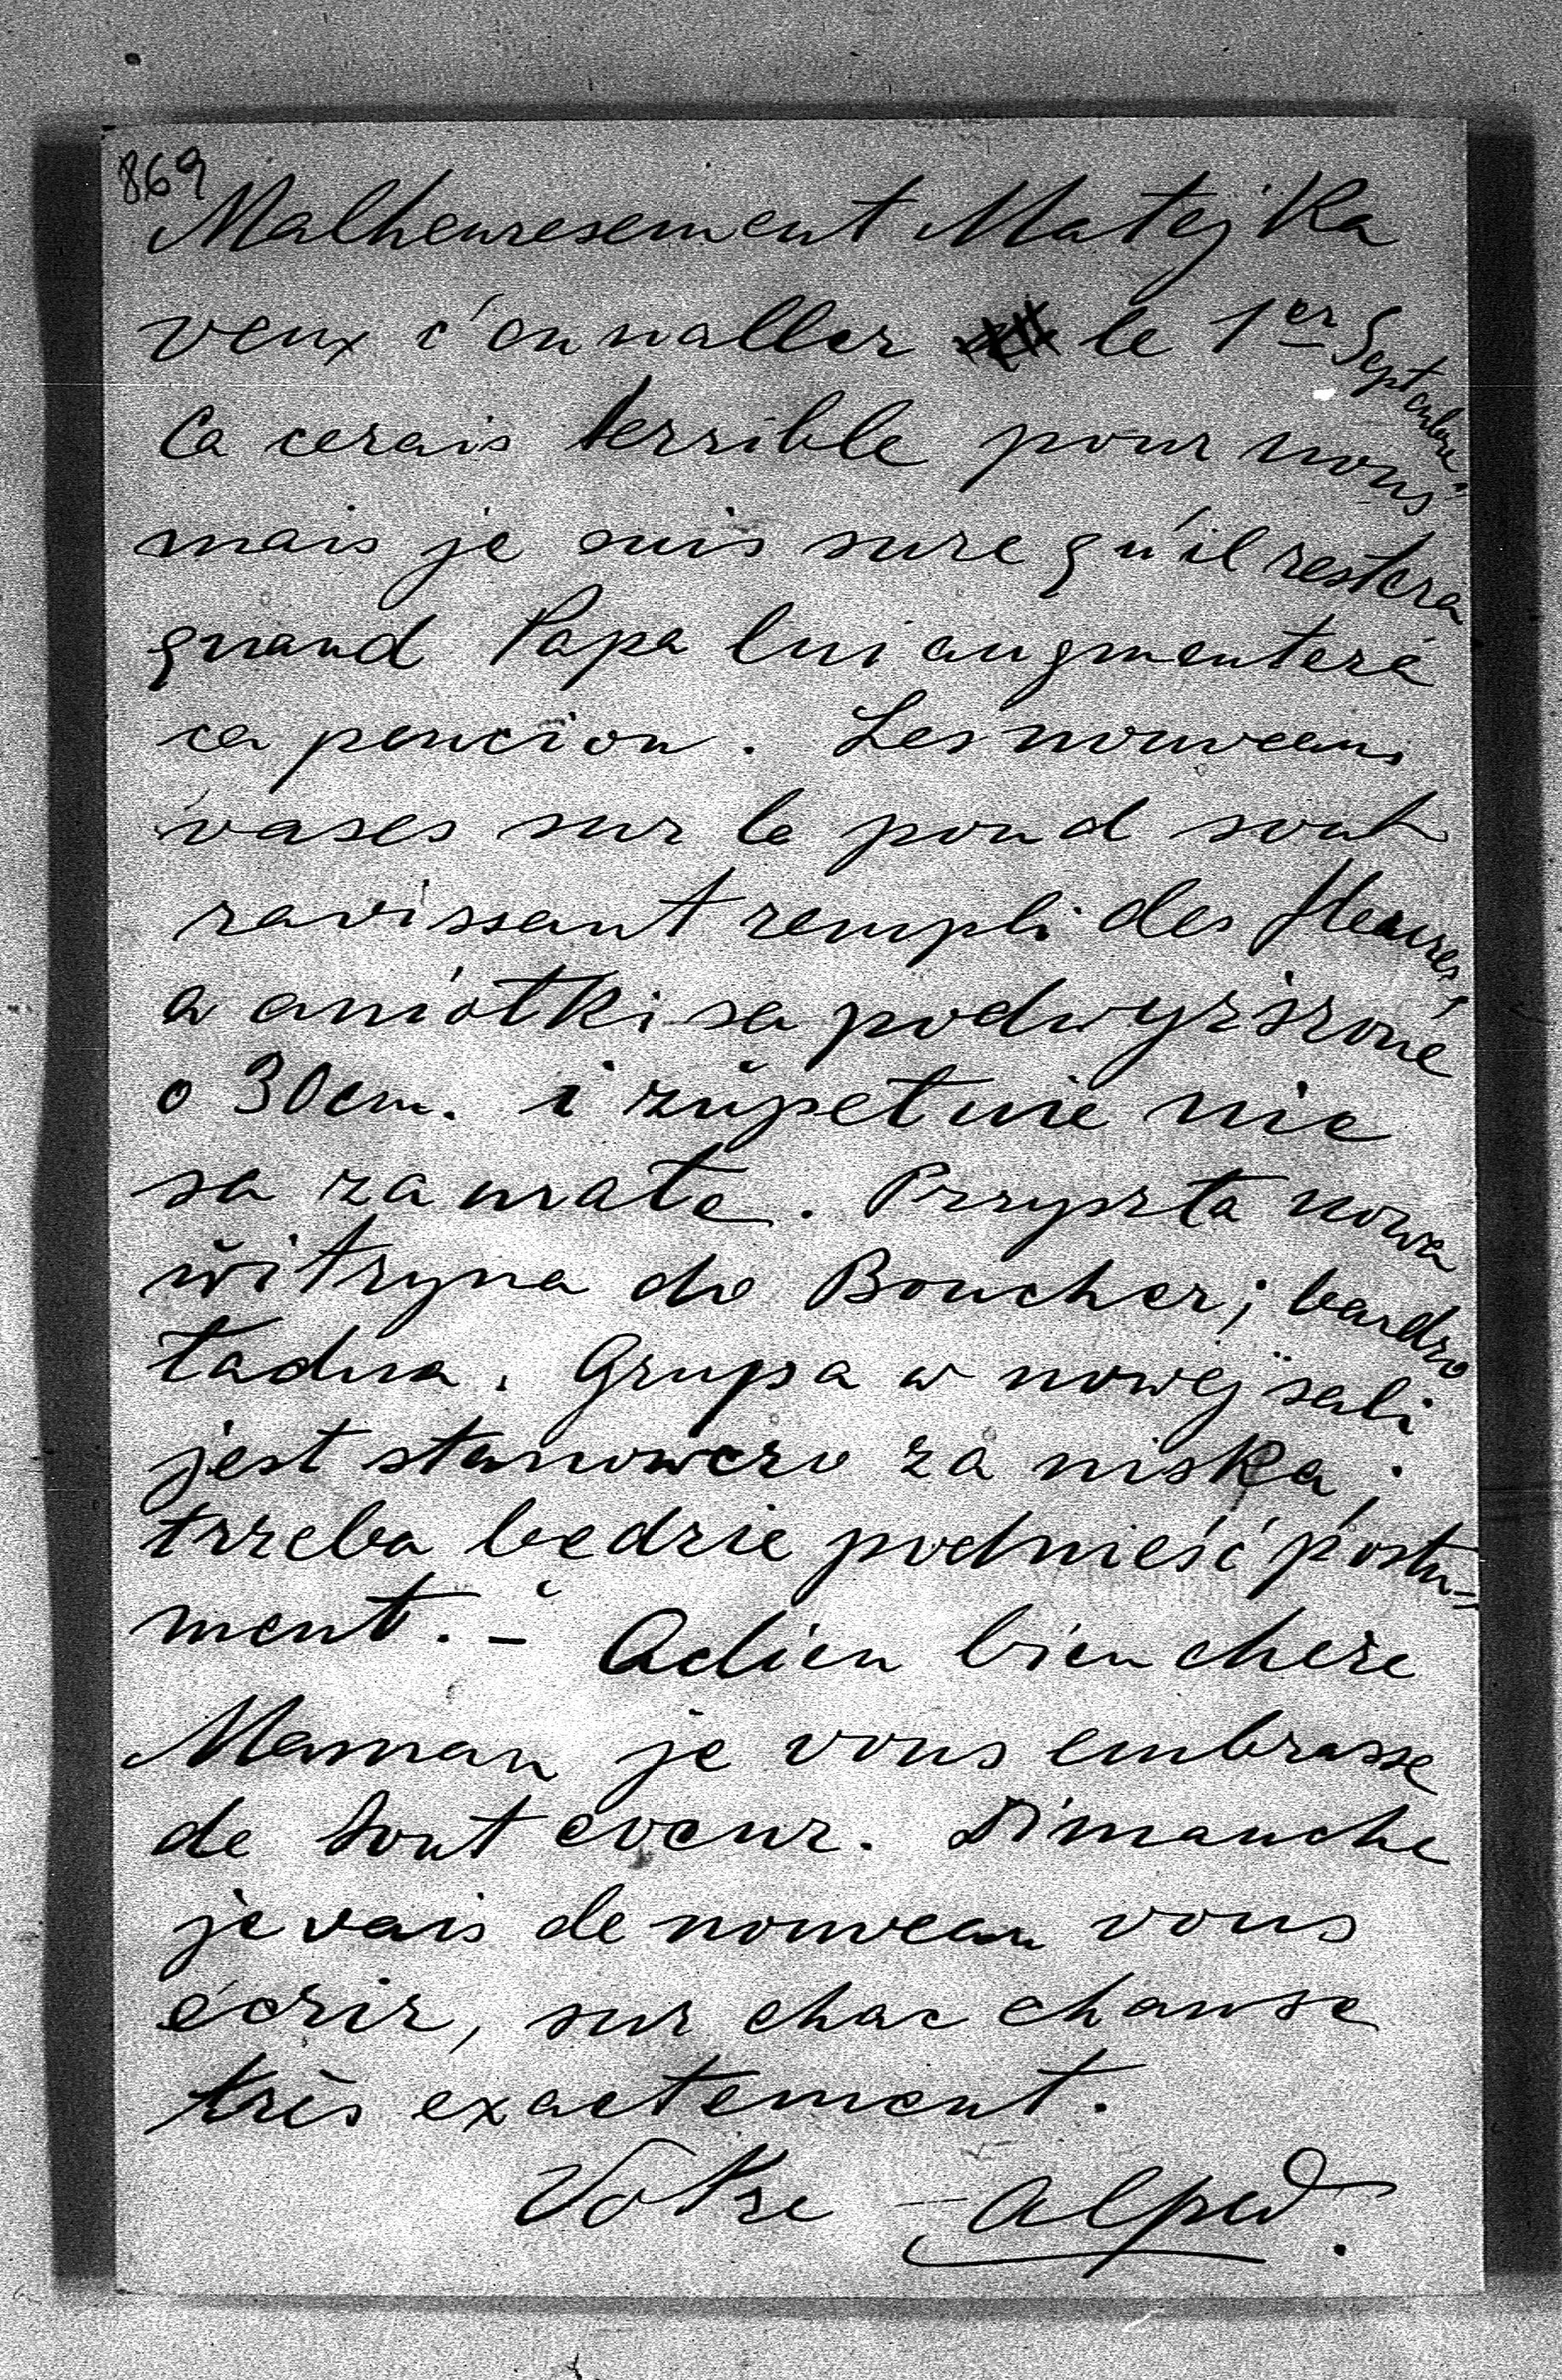 869
Malheuresement Matejka
veux c'ennaller le 1er Septembre.
Ca cerais terrible pour nous
mais je suis sure qu'il restera
quand Papa lui augmenterá
ca pencion. Les nouveaus
vases sur le pond sont
ravissant rempli des fleures,
a aniołki sa podwyższone
o 30cm. i zŭpełnie nie
sa za małe. Przyszła nowa
witryna do Boucher; bardzo
ładna. Grupa w nowej sali
jest stanowczo za niska;
trzeba będzie podnieść postu-
ment. - Adieu bien chere
Maman je vous embrasse
de tout coeur. Dimanche
je vais de nouveau vous
écrir, sur chac chause
très exactement.
Votre Alfred.